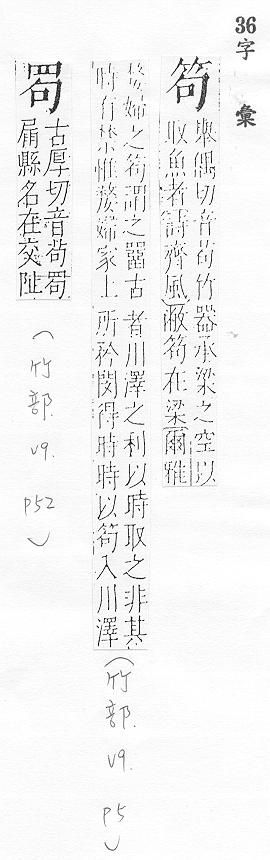 36
字彙
笱
舉偶切音苟竹器承梁之空以
取魚者詩齊風敝笱在梁爾雅
嫠婦之笱謂之罶古者川澤之利以時取之非其
時有禁惟嫠婦家上所矜閔得時時以笱入川澤
(竹部. v9. p5)
古厚切音苟
屚縣名在交阯
(竹部. v9. p52)